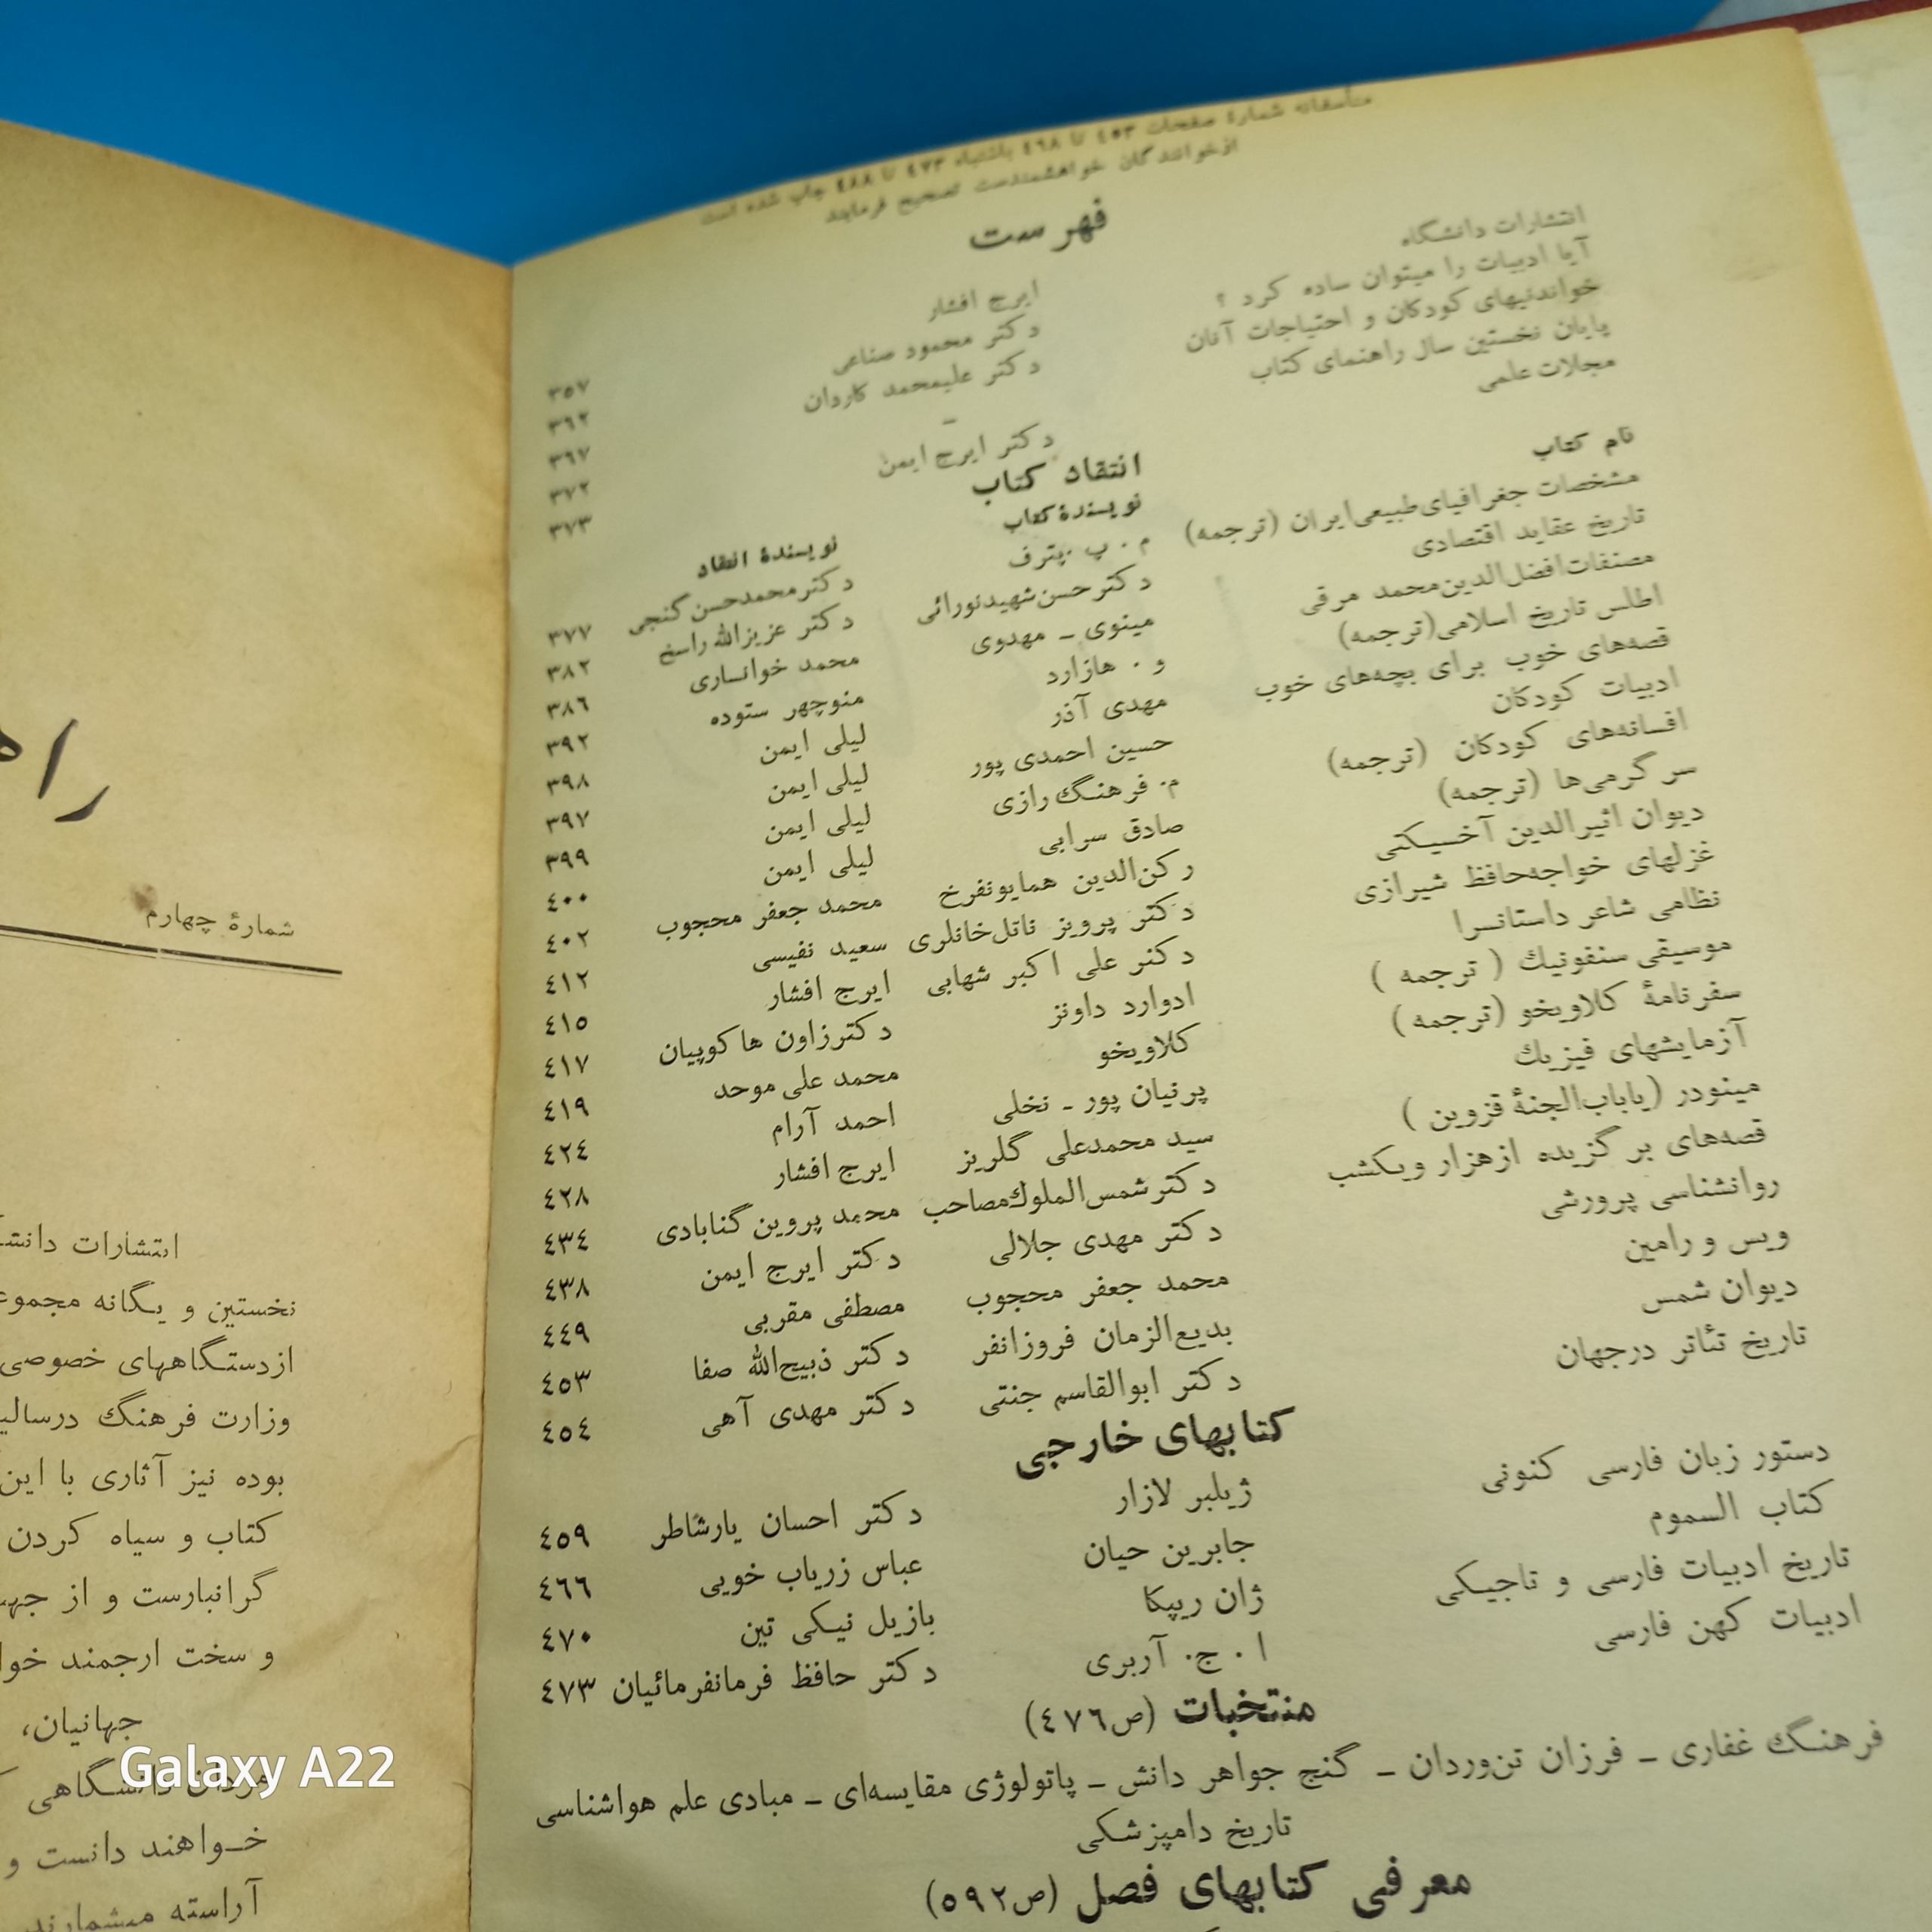 متأسفانه شمارهٔ صفحات ٤٥٣ تا ٤٦٨ باشتباه ٤٧٣ تا ٤٨٨ چاپ شده است
ازخوانندگان خواهشمندست تصحیح فرمایند
فهرست
انتشارات دانشگاه ایرج افشار ٣٥٧
آیا ادبیات را میتوان ساده کرد ؟ دکتر محمود صناعی ٣٦٢
خواندنیهای کودکان و احتیاجات آنان دکتر علیمحمد کاردان ٣٦٧
پایان نخستین سال راهنمای کتاب – ٣٧٢
مجلات علمی دکتر ایرج ایمن ٣٧٣
انتقاد کتاب
نام کتاب نویسندهٔ کتاب نویسندهٔ انتقاد
مشخصات جغرافیای طبیعی ایران (ترجمه) م . پ . پترف دکتر محمدحسن گنجی ٣٧٧
تاریخ عقاید اقتصادی دکتر حسن شهید نورائی دکتر عزیزالله راسخ ٣٨٢
مصنفات افضل الدین محمد مرقی مینوی – مهدوی محمد خوانساری ٣٨٦
اطلس تاریخ اسلامی (ترجمه) و . هازارد منوچهر ستوده ٣٩٢
قصه‌های خوب برای بچه‌های خوب مهدی آذر لیلی ایمن ٣٩٨
ادبیات کودکان حسین احمدی پور لیلی ایمن ٣٩٧
افسانه‌های کودکان (ترجمه) م. فرهنگ رازی لیلی ایمن ٣٩٩
سرگرمی‌ها (ترجمه) صادق سرابی لیلی ایمن ٤٠٠
دیوان اثیرالدین آخسیکتی رکن‌الدین همایونفرخ محمد جعفر محجوب ٤٠٢
غزلهای خواجه حافظ شیرازی دکتر پرویز ناتل خانلری سعید نفیسی ٤١٢
نظامی شاعر داستانسرا دکتر علی اکبر شهابی ایرج افشار ٤١٥
موسیقی سنفونیك ( ترجمه ) ادوارد داونز دکتر زاون هاکوپیان ٤١٧
سفرنامهٔ کلاویخو (ترجمه ) کلاویخو محمد علی موحد ٤١٩
آزمایشهای فیزیك پرنیان پور – نخلی احمد آرام ٤٢٤
مینودر (یاباب‌الجنهٔ قزوین ) سید محمدعلی گلریز ایرج افشار ٤٢٨
قصه‌های برگزیده ازهزار ویکشب دکتر شمس الملوك مصاحب محمد پروین گنابادی ٤٣٤
روانشناسی پرورشی دکتر مهدی جلالی دکتر ایرج ایمن ٤٣٨
ویس و رامین محمد جعفر محجوب مصطفی مقربی ٤٤٩
دیوان شمس بدیع‌الزمان فروزانفر دکتر ذبیح‌الله صفا ٤٥٣
تاریخ تئاتر درجهان دکتر ابوالقاسم جنتی دکتر مهدی آهی ٤٥٤
کتابهای خارجی
دستور زبان فارسی کنونی ژیلبر لازار دکتر احسان یارشاطر ٤٥٩
کتاب السموم جابربن حیان عباس زریاب خویی ٤٦٦
تاریخ ادبیات فارسی و تاجیکی ژان ریپکا بازیل نیکی تین ٤٧٠
ادبیات کهن فارسی ا . ج. آربری دکتر حافظ فرمانفرمائیان ٤٧٣
منتخبات (ص٤٧٦)
فرهنگ غفاری – فرزان تن‌وردان – گنج جواهر دانش – پاتولوژی مقایسه‌ای – مبادی علم هواشناسی
تاریخ دامپزشکی
معرفی کتابهای فصل (ص٥٩٢)
شمارهٔ چهارم
انتشارات
نخستین و یگانه
ازدستگاههای خصوصی
وزارت فرهنگ
بوده نیز آثاری با این
کتاب و سیاه کردن
گرانبارست و از
و سخت ارجمند
جهانیان،
مردان دانشگاهی
خواهند دانست و
آراسته میشمارند
Galaxy A22